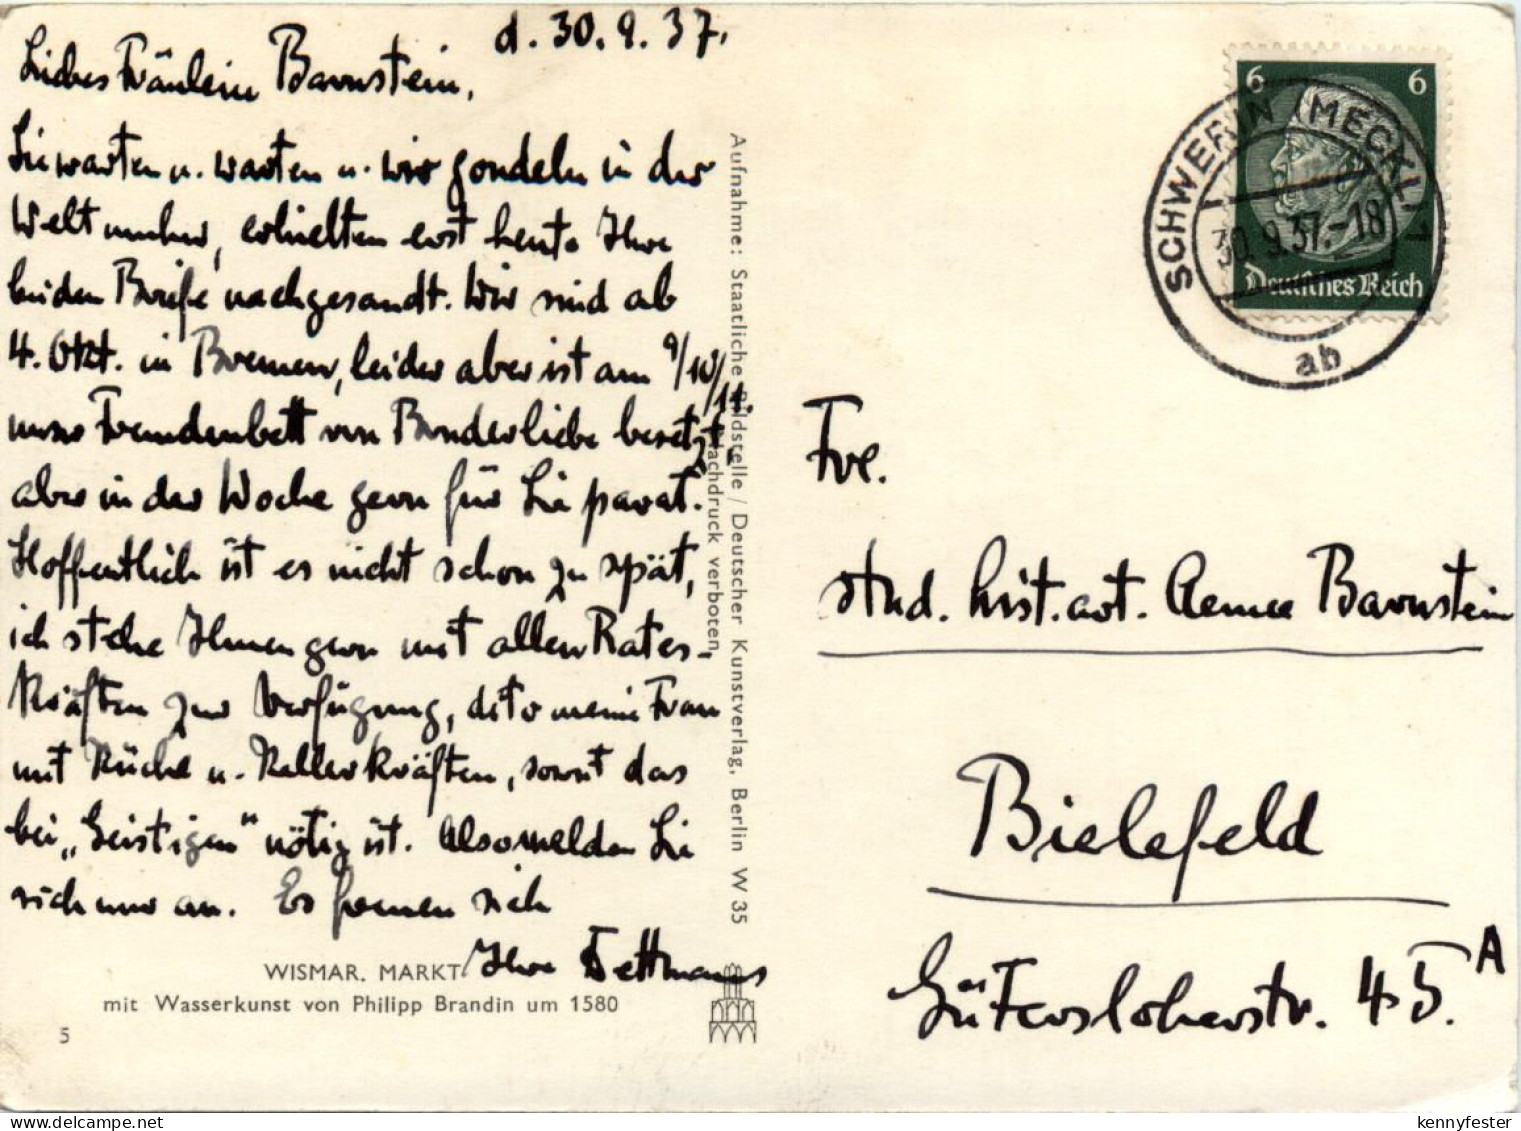 d. 30.9.37.
Liebes Fräulein Barnstein,
Sie warten u. warten u. wir gondeln in der
Welt umher, erhielten erst heute Ihre
beiden Briefe nachgesandt. Wir sind ab
4. Okt. in Bremen, leider aber ist am 9/10/11.
unser Fremdenbett von Bruderliebe besetzt,
aber in der Woche gern für Sie parat.
Hoffentlich ist es nicht schon zu spät,
ich stehe Ihnen gern mit allen Rates-
kräften zur Verfügung, dito meine Frau
mit Küche u. Kellerkräften, soweit das
bei „Geistigen“ nötig ist. Also melden Sie
sich nur an. Es freuen sich
Ihre Dettmanns
WISMAR. MARKT
mit Wasserkunst von Philipp Brandin um 1580
5
Aufnahme: Staatliche Bildstelle / Deutscher Kunstverlag, Berlin W 35
Nachdruck verboten
6 6
Deutsches Reich
SCHWERIN (MECKL) 1
30.9.37.-18
ab
Frl.
stud. hist. art. Aenne Barnstein
Bielefeld
Gütersloherstr. 45.A
kennyfester